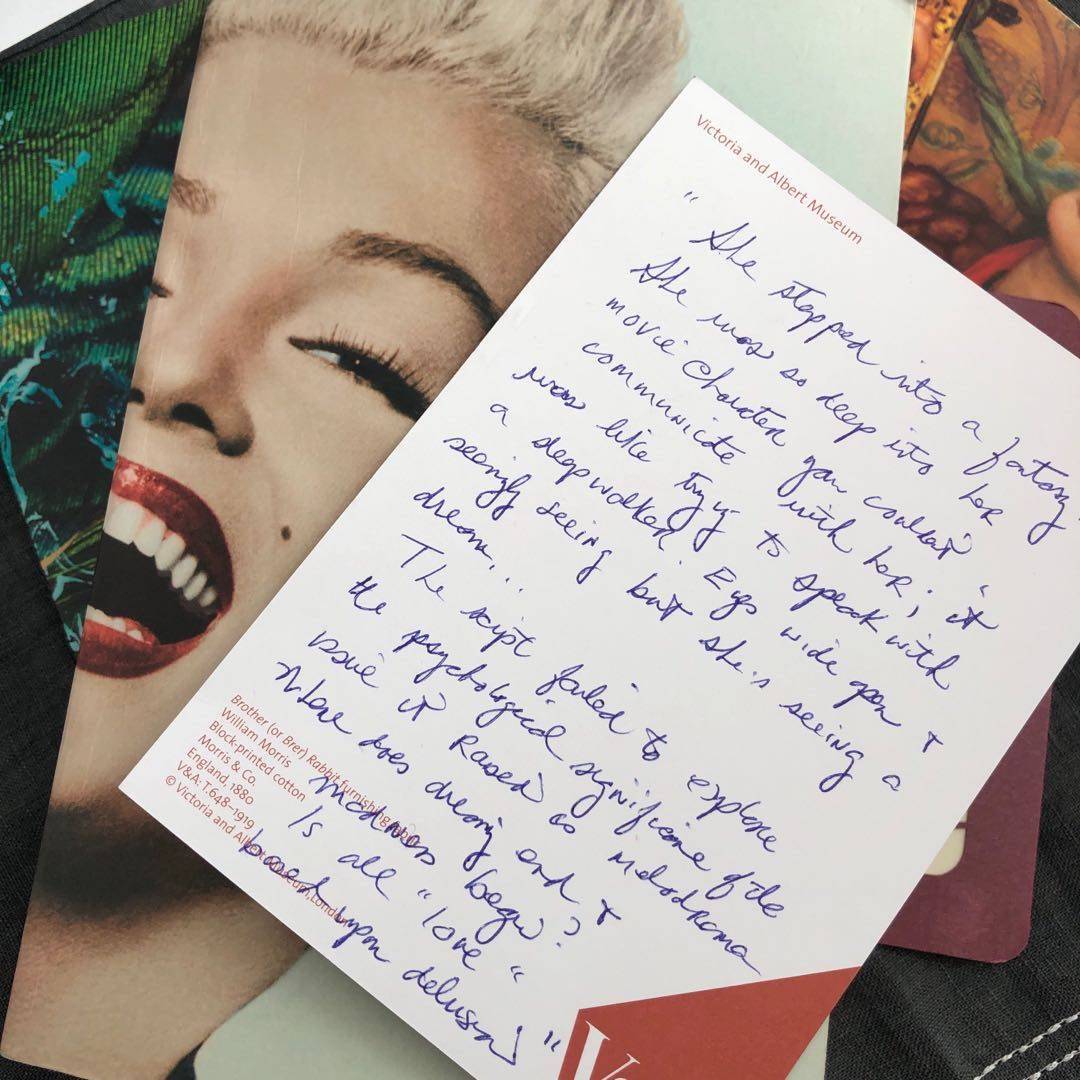 Victoria and Albert Museum
" She stepped into a fantasy.
She was so deep into her
movie character you couldn't
communicate with her; it
was like trying to speak with
a sleepwalker. Eyes wide open &
seemingly seeing but she's seeing a
dream...
The script failed to explore
the psychological significance of the
issue it raised as melodrama
Where does dreaming end &
madness begin?
Is all "love"
based upon delusion? "
Brother (or Brer) Rabbit furnishing fabric
William Morris
Block-printed cotton
Morris & Co.
England, 1880
V&A: T.648–1919
© Victoria and Albert Museum, London